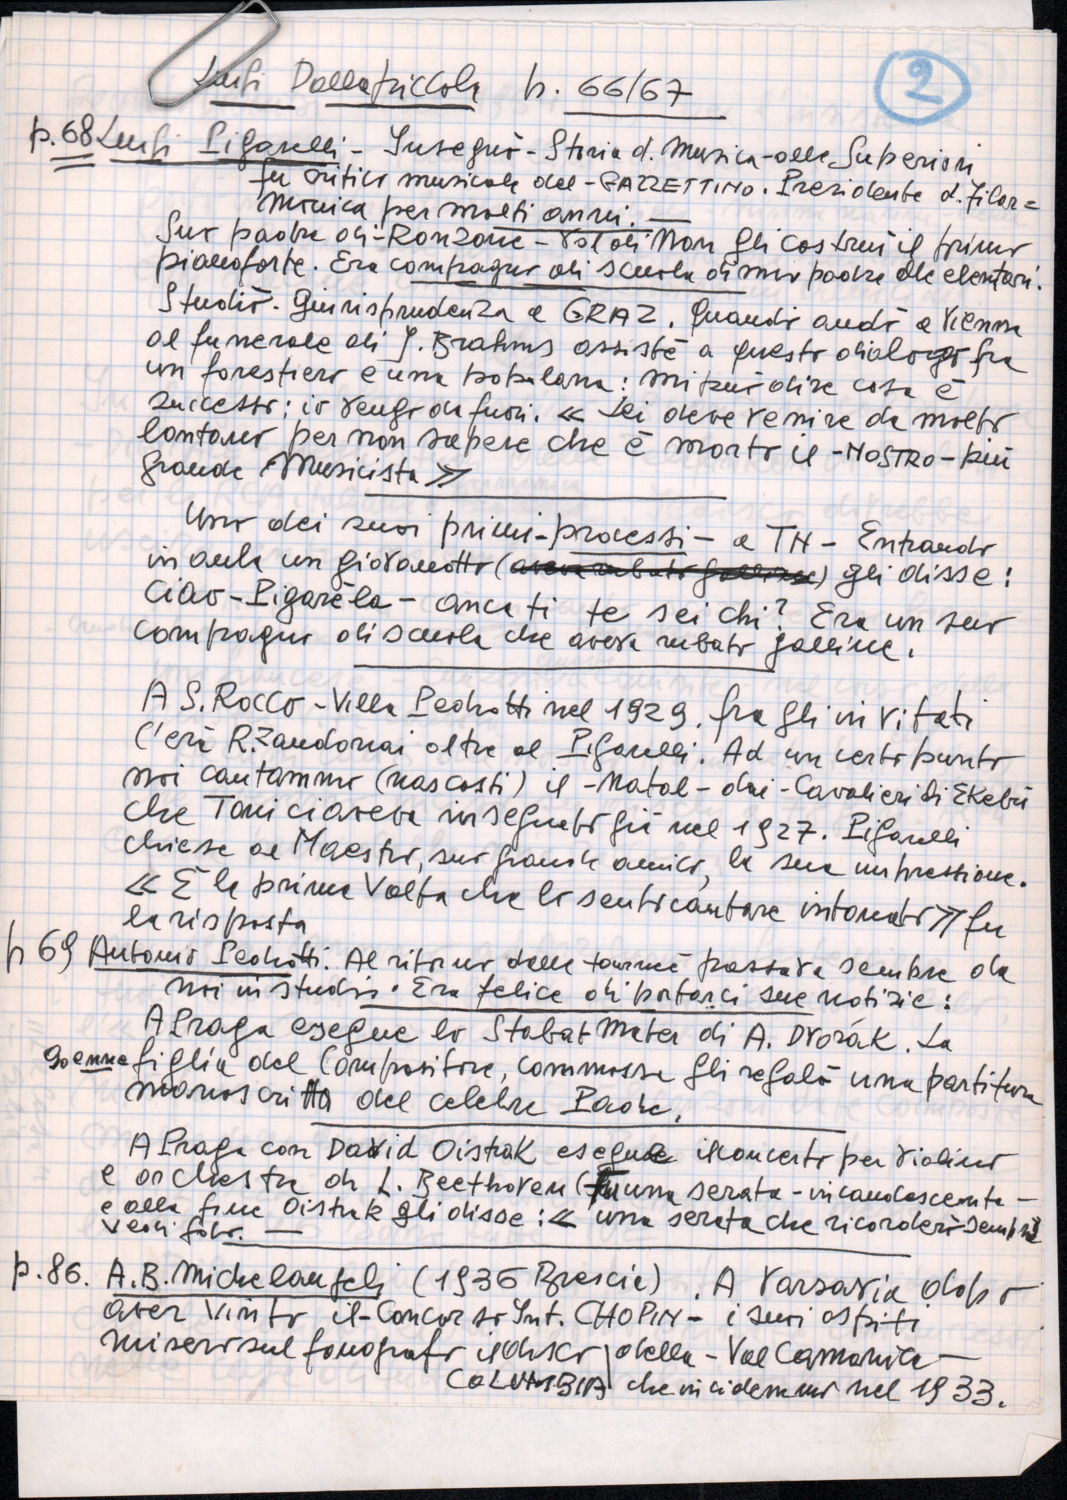 2
Luigi Dallapiccola p. 66/67
p.68 Luigi Pigarelli - Insegnò - Storia d. Musica - alle Superiori
fu critico musicale del - GAZZETTINO. Presidente d. Filar=
monica per molti anni. —
Suo padre di - Ronzone - Val di Non gli costruì il primo
pianoforte. Era compagno di scuola di mio padre alle elementari.
Studiò. Giurisprudenza a GRAZ. Quando andò a Vienna
al funerale di J. Brahms assistè a questo dialogo fra
un forestiero e una popolana: mi può dire cosa è
successo; io vengo da fuori. « Lei deve venire da molto
lontano per non sapere che è morto il - NOSTRO - più
grande Musicista »
Uno dei suoi primi - processi - a TN - Entrando
in aula un giovanotto (aveva rubato galline) gli disse:
Ciao - Pigarèla - anca ti te sei chi? Era un suo
compagno di scuola che aveva rubato galline.
A S. ROCCO - Villa Pedrotti nel 1929. fra gli invitati
c'era R. Zandonai oltre al Pigarelli. Ad un certo punto
noi cantammo (nascosti) il - Natal - dai - Cavalieri di Ekebù
che Toni ci aveva insegnato già nel 1927. Pigarelli
chiese al Maestro, suo grande amico, la sua impressione.
« È la prima Volta che lo sento cantare intonato » fu
la risposta
p 69 Antonio Pedrotti. Al ritorno dalle tourneè passava sempre da
noi in studio. Era felice di portarci sue notizie:
A Praga esegue lo Stabat Mater di A. Dvorák. La
90enne figlia del Compositore, commossa gli regalò una partitura
manoscritta del celebre Padre.
A Praga con David Oistrak esegue il concerto per violino
e orchestra di L. Beethoven (Fu una serata - incandescente -
e alla fine Oistrak gli disse: « una serata che ricorderò sempre
p.86. A.B. Michelangeli (1936 Brescia). A Varsavia dopo
aver Vinto il - Concorso Int. CHOPIN - i suoi ospiti
misero sul fonografo il disco della - Val Camonica -
COLUMBIA che incidemmo nel 1933.